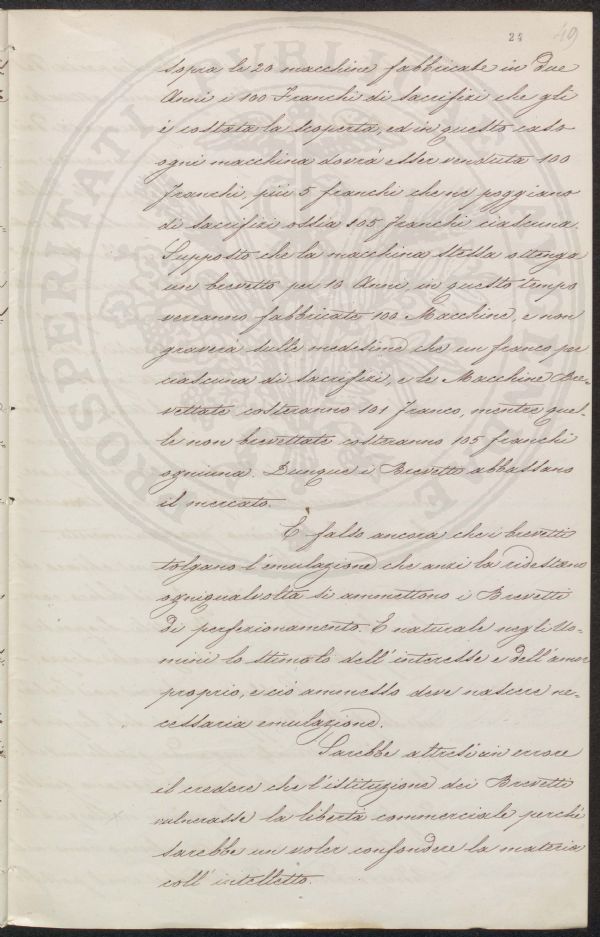 24 49
sopra le 20 macchine fabbricate in due
Anni i 100 Franchi di sacrifizi che gli
è costata la scoperta, ed in questo caso
ogni macchina dovrà esser venduta 100
Franchi, più 5 franchi che ne poggiano
di sacrifizi ossia 105 Franchi ciascuna.
Supposto che la macchina stessa ottenga
un brevetto per 10 Anni, in questo tempo
verranno fabbricate 100 Macchine, e non
graverà sulle medesime che un franco per
ciascuna di sacrifizi, e le Macchine Bre=
vettate costeranno 101 Franco, mentre quel=
le non brevettate costeranno 105 franchi
ogniuna. Dunque i Brevetti abbassano
il mercato.
E falso ancora che i brevetti
tolgano l'emulazione che anzi la ridestano
ogniqualvolta si ammettono i Brevetti
di perfezionamento. E naturale negli Uo=
mini lo stimolo dell'interesse e dell'amor
proprio, e ciò ammesso deve nascere ne=
cessaria emulazione.
Sarebbe altresì un errore
il credere che l'istituzione dei Brevetti
vulnerasse la libertà commerciale perchè
sarebbe un voler confondere la materia
coll'intelletto.
PROSPERITATI PVBLICAE